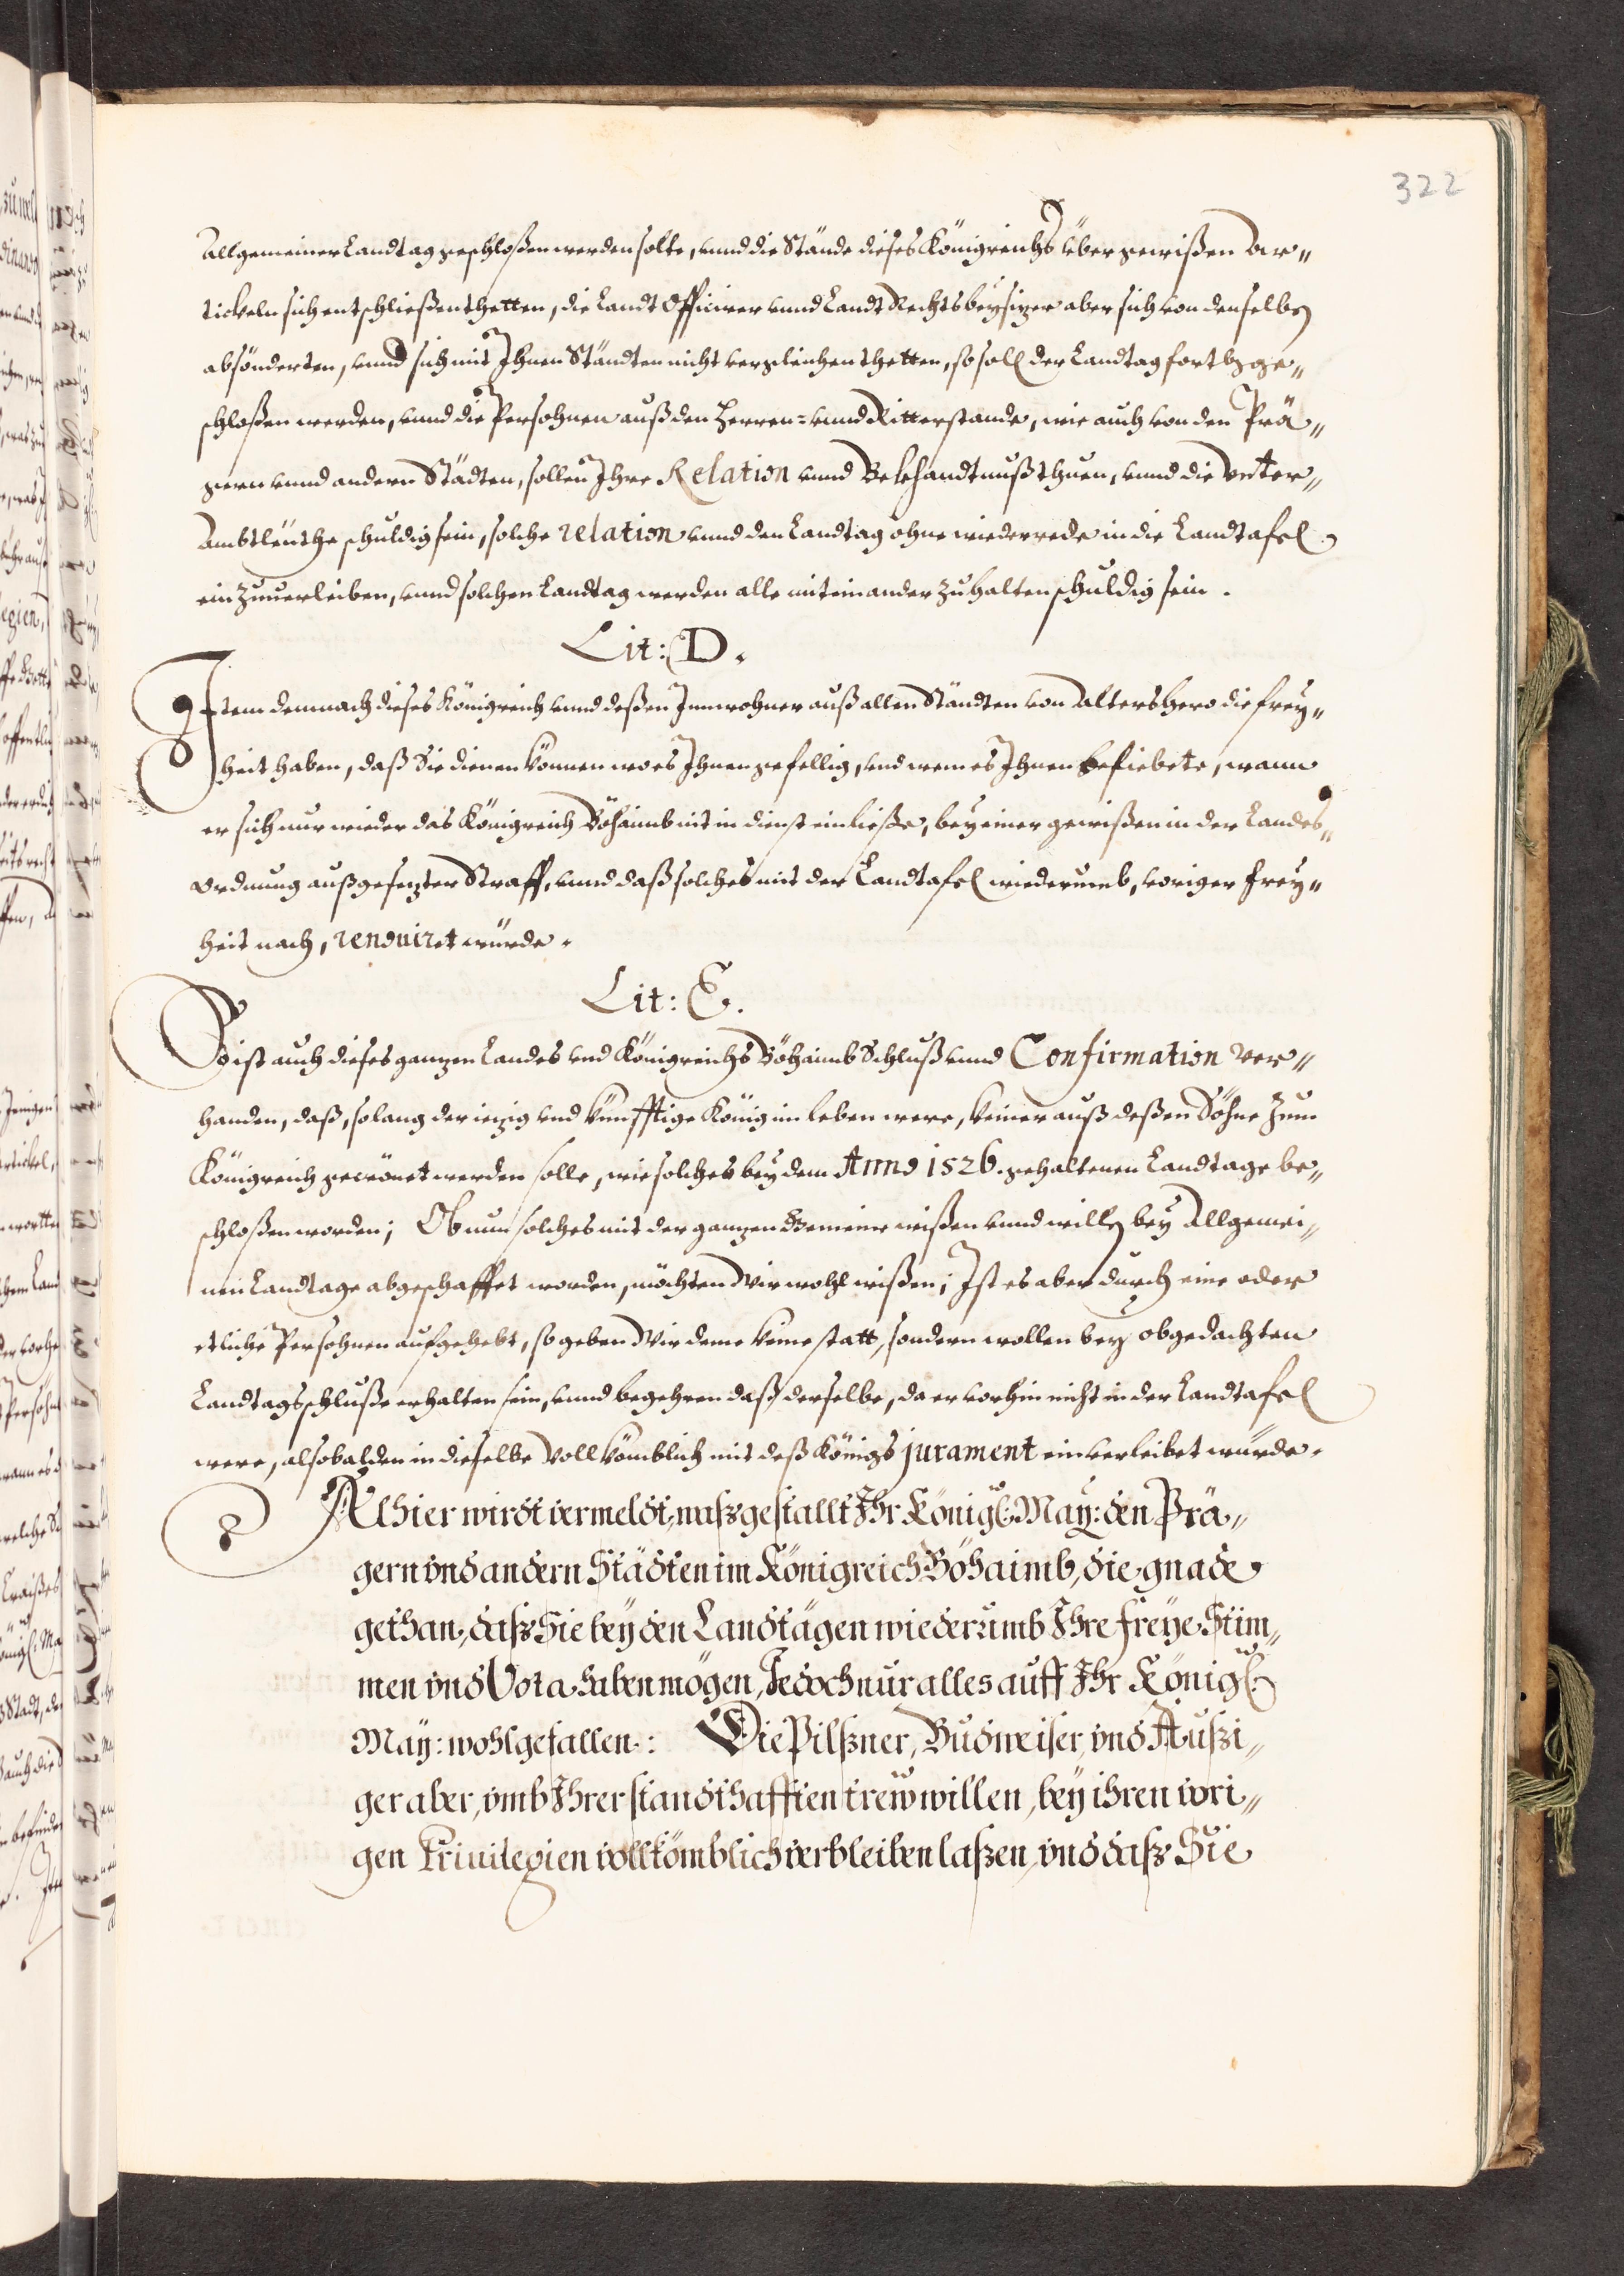 322
Allgemeiner Landtag geschloßen werden solte, vnnd die Stände dieses Königreichs über gewißen Ar„
tickeln sich entschließen thetten, die Landt Officirer vnnd Landt Rechts beysizer aber sich von denselben
absönderten, vnnd sich mit Ihnen Ständten nicht vergleichen thetten, so soll der Landtag fort ge„
schloßen werden, vnnd die Persohnen auß den Herren= vnnd Ritterstande, wie auch von den Prä„
gern vnnd andern Städten, sollen Ihre Relation vnnd Bekhandtnuß thuen, vnnd die Vnter„
Ambtleüthe schuldig sein, solche relation vnnd den Landtag ohne wiederrede in die Landtafel
einzuuerleiben, vnnd solchen Landtag werden alle miteinander zu halten schuldig sein.
Lit: D.
Item demnach dieses Königreich vnnd deßen Innwohner auß allen Ständten von Altershero die frey„
heit haben, daß Sie dienen können wo es Ihnen gefellig, vnd wem es Ihnen beliebete, wann
er sich nur wieder das Königreich Böhaimb nit in dienst einließe, bey einer gewißen in der Landes„
ordnung außgesezter Straff, vnnd daß solches mit der Landtafel wiederumb, voriger frey„
heit nach, renouiret würde.
Lit: E.
So ist auch dieses ganzen Landes vnd Königreichs Böhaimb Schluß vnnd Confirmation ver„
handen, daß, solang der iezig vnd künfftige König im leben were, keiner auß deßen Söhne zum
Königreich gecrönet werden solle, wie solches bey dem Anno 1526. gehaltenen Landtage be„
schloßen worden; Ob nun solches mit der ganzen Gemeine wißen vnnd willen bey Allgemei„
nen Landtage abgeschaffet worden, möchten Wir wohl wißen; Ist es aber durch eine oder
etliche Persohnen aufgehebt, so geben Wir deme keine statt, sondern wollen bey obgedachten
Landtagsschluße erhalten sein, vnnd begehren daß derselbe, da er vorhin nicht in der Landtafel
were, alsobalden in dieselbe Vollkömblich mit deß Königs jurament einverleibet würde.
Alhier wirdt vermeldt, waßgestallt Ihr Königl: May: den Prä„
gern vnd andern Städten im Königreich Böhaimb, die gnade
gethan, daß Sie bey den Landtägen wiederumb Ihre freye Stim„
men vnd Vota haben mögen, Jedoch nur alles auff Ihr Königl:
May: wohlgefallen: Die Pilßner, Budweiser, vnd Außi„
ger aber, vmb Ihrer standthafften trew willen, bey ihren vori„
gen Priuilegien vollkömblich verbleiben laßen, vnd daß Sie